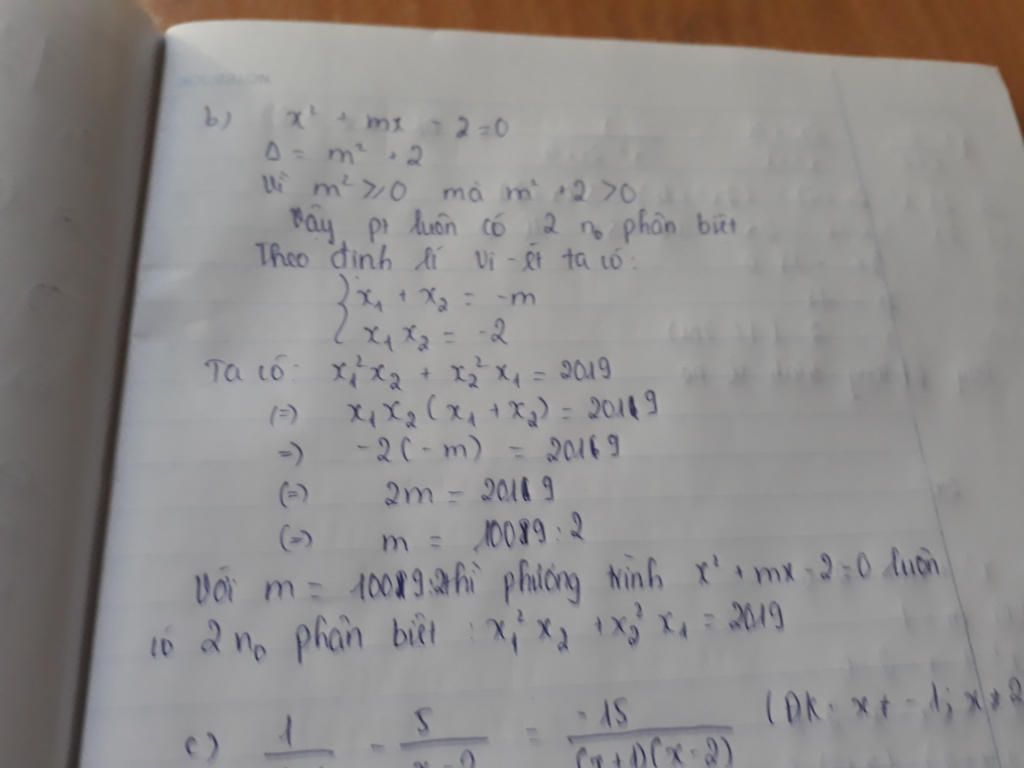 b) x² + mx - 2 = 0
Δ = m² + 2
Vì m² ≥ 0 mà m² + 2 > 0
Vậy pt luôn có 2 n₀ phân biệt
Theo định lí Vi-ét ta có:
{ x₁ + x₂ = -m
{ x₁ x₂ = -2
Ta có: x₁²x₂ + x₂²x₁ = 2019
(=) x₁x₂(x₁ + x₂) = 2019
=) -2(-m) = 2019
(=) 2m = 2019
(=) m = 10089:2
Với m = 10089:2 thì phương trình x² + mx - 2 = 0 luôn
có 2 n₀ phân biệt : x₁²x₂ + x₂²x₁ = 2019
c) 1 - 5 = -15 / (x+1)(x-2) (ĐK: x ≠ -1; x ≠ 2